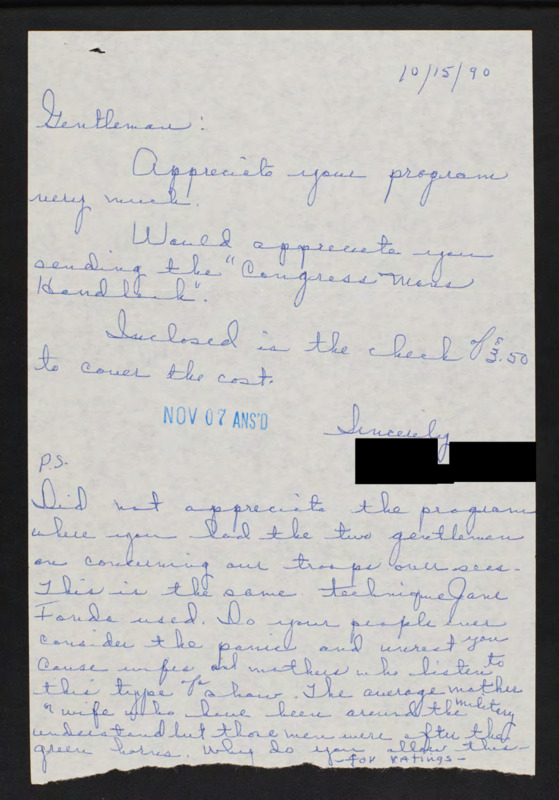 10/15/90
Gentleman:
Appreciate your program
very much.
Would appreciate you
sending the "Congress Mans
Hand book".
Inclosed is the check of $3.50
to cover the cost.
NOV 07 ANS'D
Sincerely
P.S.
Did not appreciate the program
where you had the two gentlemen
on concerning our troops over seas.
This is the same technique Jane
Fonda used. Do your people ever
consider the panic and unrest you
cause wifes and mothers who listen to
this type of show. The average mother
or wife who have been around the military
understand but those men were after the
green horns. Why do you allow this -
- for ratings -